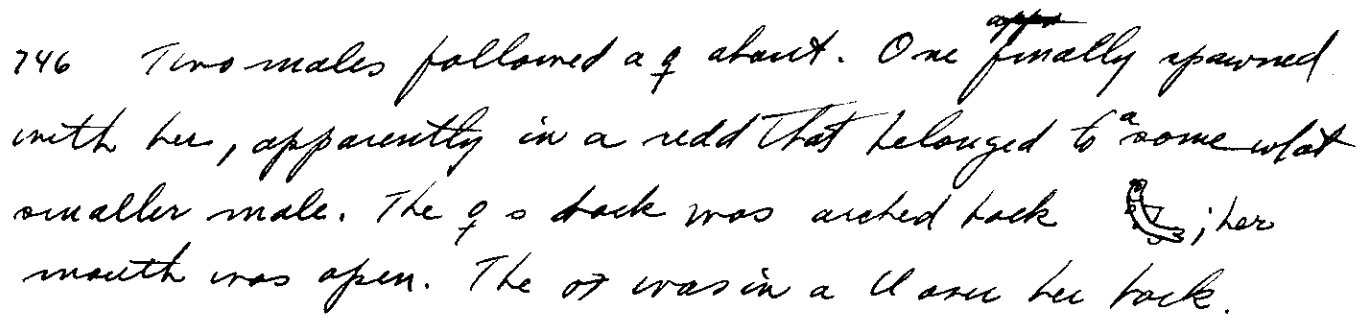 746 Two males followed a ♀ about. One finally spawned
with her, apparently in a redd that belonged to a some what
smaller male. The ♀s back was arched back ; her
mouth was open. The ♂ was in a U over her back.